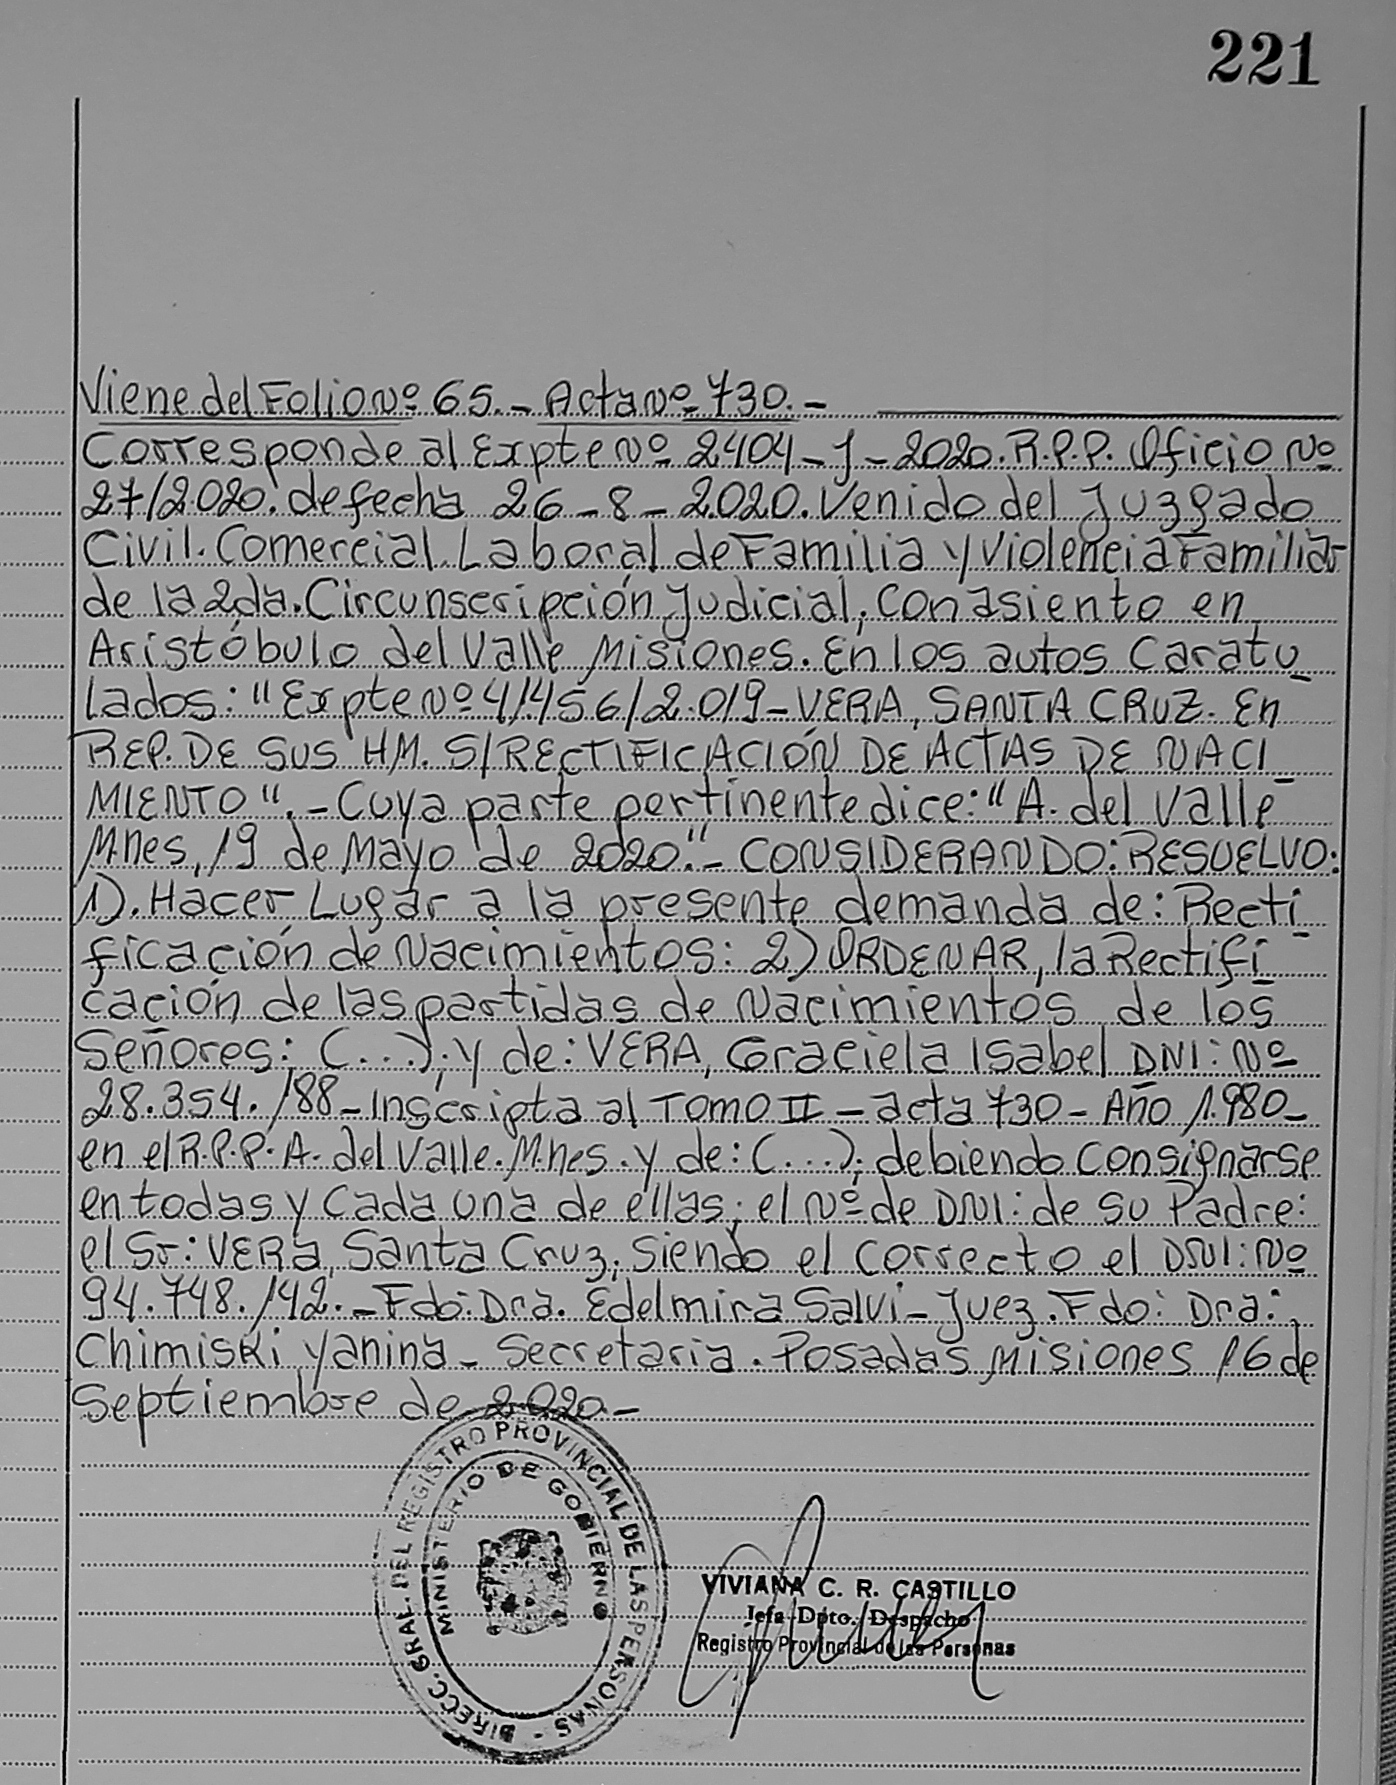 221
Viene del Folio Nº 65.- Acta Nº 730.-
Corresponde al Expte Nº 2404-J-2020. R.P.P. Oficio Nº
27/2020. de fecha 26-8-2020. Venido del Juzgado
Civil. Comercial. Laboral de Familia y Violencia Familiar
de la 2da. Circunscripción Judicial, con asiento en
Aristóbulo del Valle Misiones. En los autos Caratu_
lados: "Expte Nº 41456/2.019- VERA, SANTA CRUZ. En
REP. DE SUS HM. S/RECTIFICACIÓN DE ACTAS DE NACI_
MIENTO".- Cuya parte pertinente dice: "A. del Valle
Mnes, 19 de Mayo de 2020."- CONSIDERANDO: RESUELVO:
1). Hacer Lugar a la presente demanda de: Recti_
ficación de Nacimientos: 2) ORDENAR, la Rectifi_
cación de las partidas de Nacimientos de los
Señores: (...); y de: VERA, Graciela Isabel DNI: Nº
28.354.188- Inscripta al TOMO II- acta 730- Año 1.980-
en el R.P.P. A. del Valle. Mnes. y de: (...); debiendo consignarse
en todas y cada una de ellas; el Nº de DNI: de su Padre:
el Sr: VERA, Santa Cruz, siendo el correcto el DNI: Nº
94.748.142.- Fdo: Dra. Edelmira Salvi- Juez. Fdo: Dra:
Chimiski Yanina- Secretaria. Posadas Misiones 16 de
Septiembre de 2020-
DIRECC. GRAL. DEL REGISTRO PROVINCIAL DE LAS PERSONAS -
MINISTERIO DE GOBIERNO
VIVIANA C. R. CASTILLO
Jefa Dpto. Despacho
Registro Provincial de las Personas